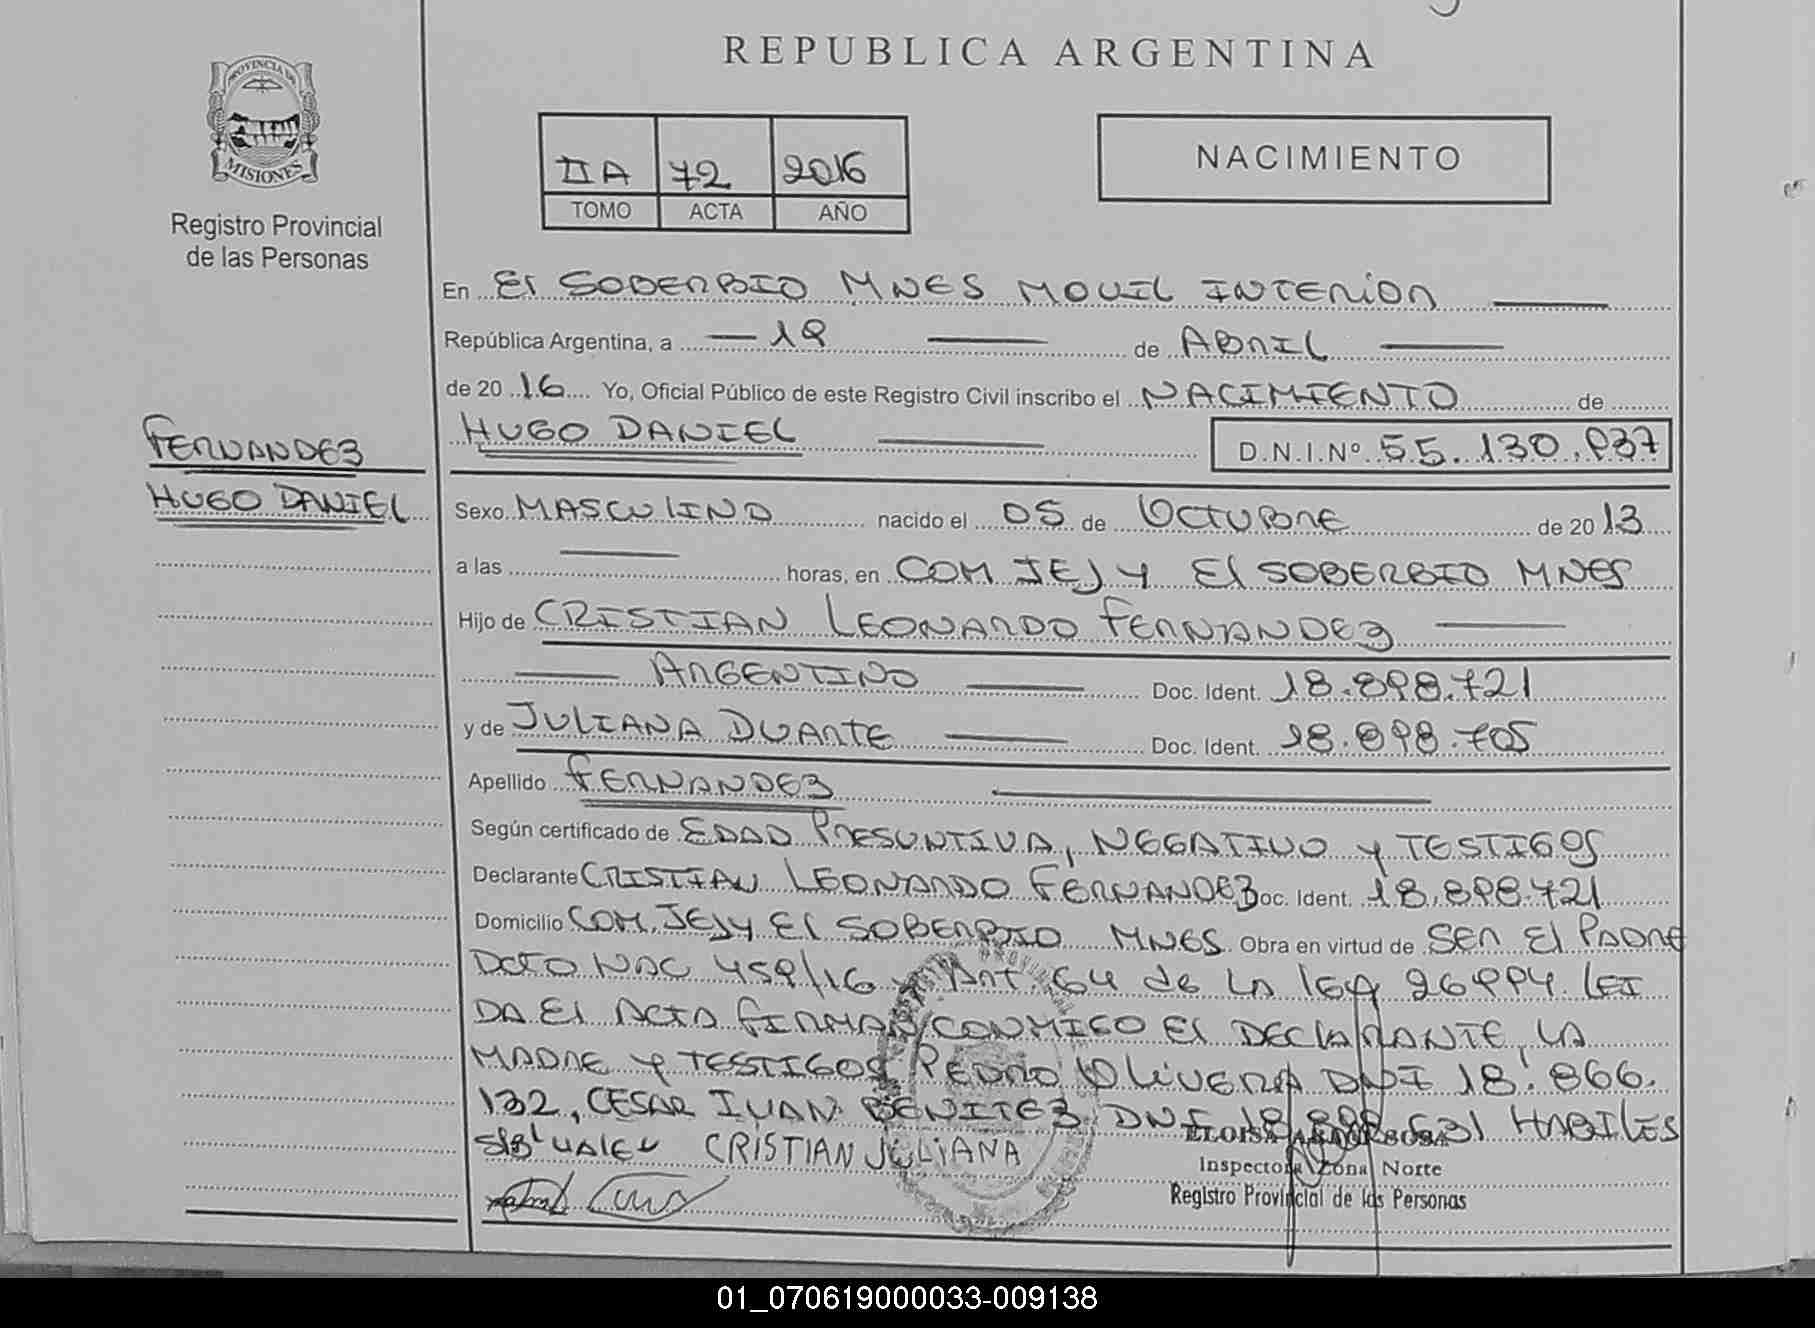 REPUBLICA ARGENTINA
PROVINCIA DE
MISIONES
Registro Provincial
de las Personas
IIA 72 2016
TOMO ACTA AÑO
NACIMIENTO
En El SOBERBIO MNES MOVIL INTERIOR
República Argentina, a 19 de ABRIL
de 2016 Yo, Oficial Público de este Registro Civil inscribo el NACIMIENTO de
HUGO DANIEL D.N.I.Nº 55.130.937
FERNANDEZ
HUGO DANIEL
Sexo MASCULINO nacido el 05 de OCTUBRE de 2013
a las horas, en COM JEJY El SOBERBIO MNES
Hijo de CRISTIAN LEONARDO FERNANDEZ
ARGENTINO Doc. Ident. 18.898.721
y de JULIANA DUARTE Doc. Ident. 18.898.705
Apellido FERNANDEZ
Según certificado de EDAD PRESUNTIVA, NEGATIVO y TESTIGOS
Declarante CRISTIAN LEONARDO FERNANDEZ Doc. Ident. 18.898.721
Domicilio COM. JEJY El SOBERBIO MNES Obra en virtud de SER El PADRE
DCTO NAC 459/16 y Art. 64 de LA ley 26994 LEI
DA El ACTA FIRMAN CONMIGO El DECLARANTE, LA
MADRE y TESTIGOS PEDRO OLIVERA DNI 18.866.
132, CESAR IVAN BENITEZ DNI 631 HABILES
CRISTIAN JULIANA
Inspectora Zona Norte
Registro Provincial de las Personas
01_070619000033-009138